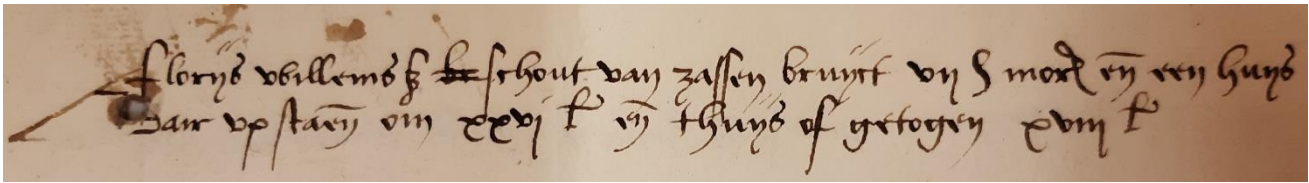 florijs willems z schout van zassen bruyct vij morg en een huijs
Dair up staen om xxvi en thuijs of getogen xviii